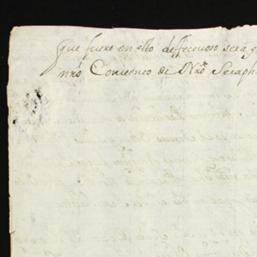 que fuere en ello deffecuon sera q
nr̃o Conuenco de Nr̃o Seraph